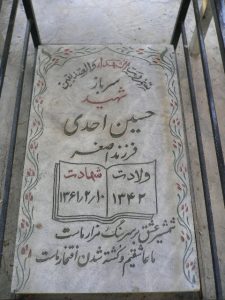 سرباز
شهید
حسین احدی
فرزند اصغر
ولادت شهادت
۱۳۴۲ ۱۳۶۱/۲/۱۰
شمشیر عشق بر سر سنگ مزار ماست
ما عاشقیم و کشته شدن افتخار ماست